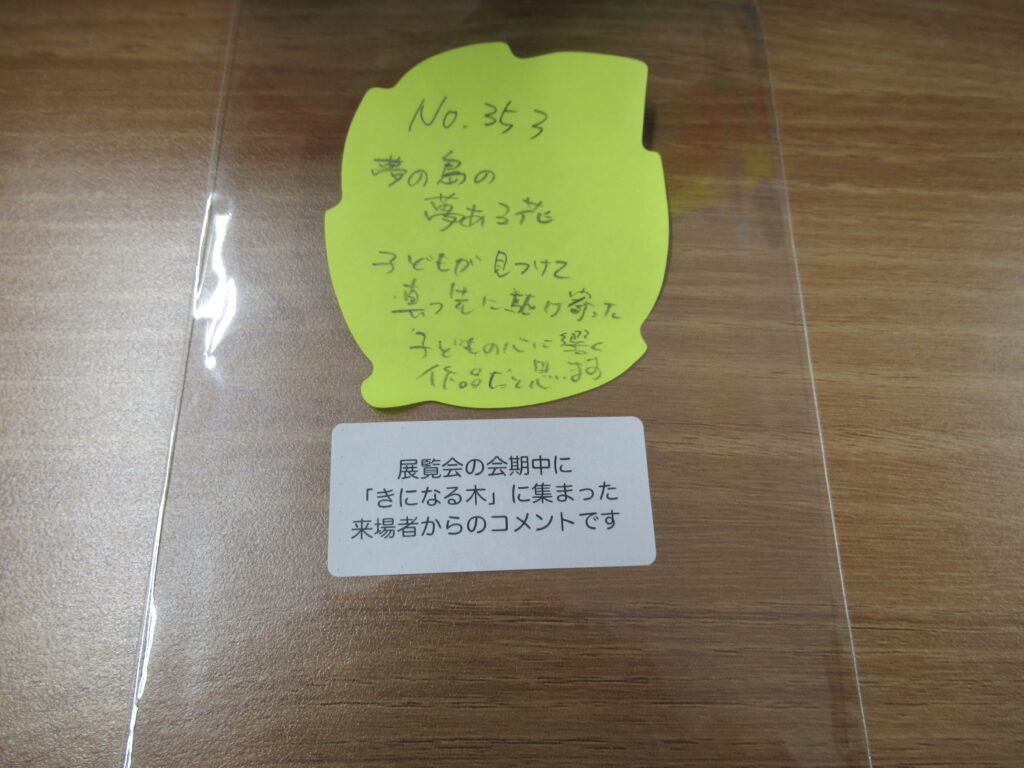 No.353
夢の島の
夢ある花
子どもが見つけて
真っ先に駆け寄った
子どもの心に響く
作品だと思います
展覧会の会期中に
「きになる木」に集まった
来場者からのコメントです